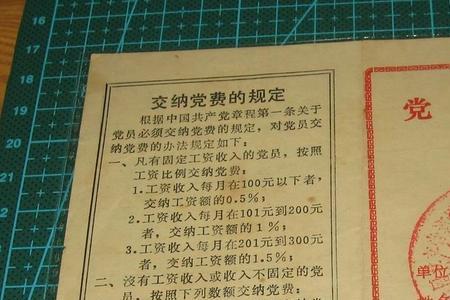 交纳党费的规定
根据中国共产党章程第一条关于
党员必须交纳党费的规定，对党员交
纳党费的办法规定如下：
一、凡有固定工资收入的党员，按照
工资比例交纳党费：
1.工资收入每月在100元以下者，
交纳工资额的0.5%；
2.工资收入每月在101元到200元
者，交纳工资额的1%；
3.工资收入每月在201元到300元
者，交纳工资额的1.5%；
二、没有工资收入或收入不固定的党
员，按照下列数额交纳党费：
党
单位
16
17
18
19
20
21